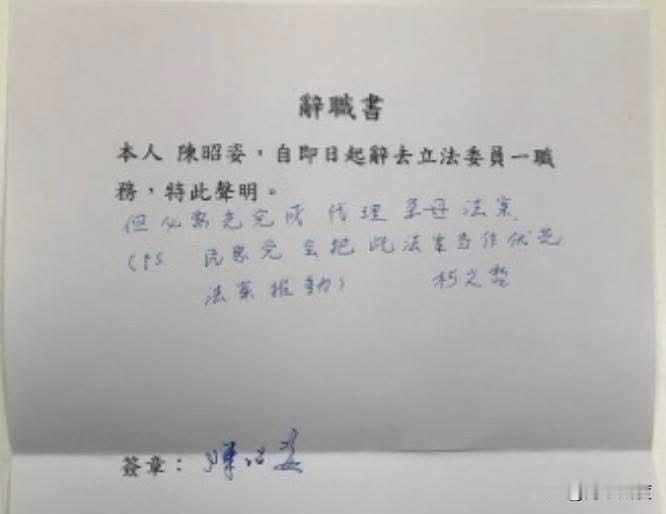 辭職書
本人 陳昭姿，自即日起辭去立法委員一職
務，特此聲明。
但必需先完成 代理孕母 法案
(PS 民眾党 会把 此法案当作优先
法案推動) 柯文哲
簽章： 陳昭姿